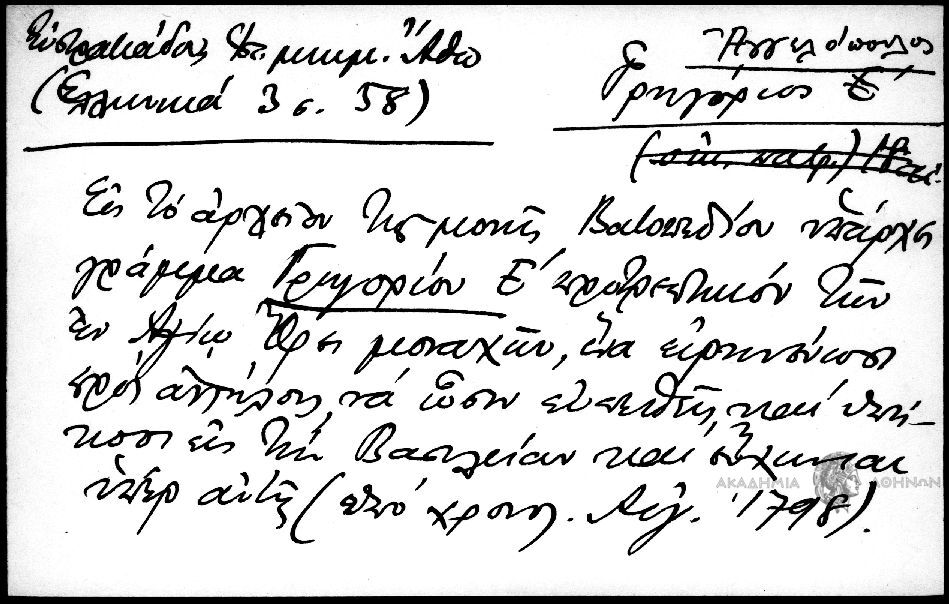 Εὐστρατιάδης Ἱστ. μνημ. Ἄθω
(Ἑλληνικά 3 σ. 58)
Ἀγγελόπουλος
Γρηγόριος Ε΄
(οἰκ. πατρ.)
Εἰς τὸ ἀρχεῖον τῆς μονῆς Βατοπεδίου ὑπάρχει
γράμμα Γρηγορίου Ε΄ προτρεπτικόν τῶν
ἐν Ἁγίῳ Ὄρει μοναχῶν, ἵνα εἰρηνεύωσι
πρὸς ἀλλήλους, νά ὦσιν εὐπειθεῖς καί ὑπή-
κοοι εἰς τὴν Βασιλείαν καί εὔχωνται
ὑπέρ αὐτῆς (ὑπό χρονολ. Αὐγ. 1798).
ΑΚΑΔΗΜΙΑ ΑΘΗΝΩΝ